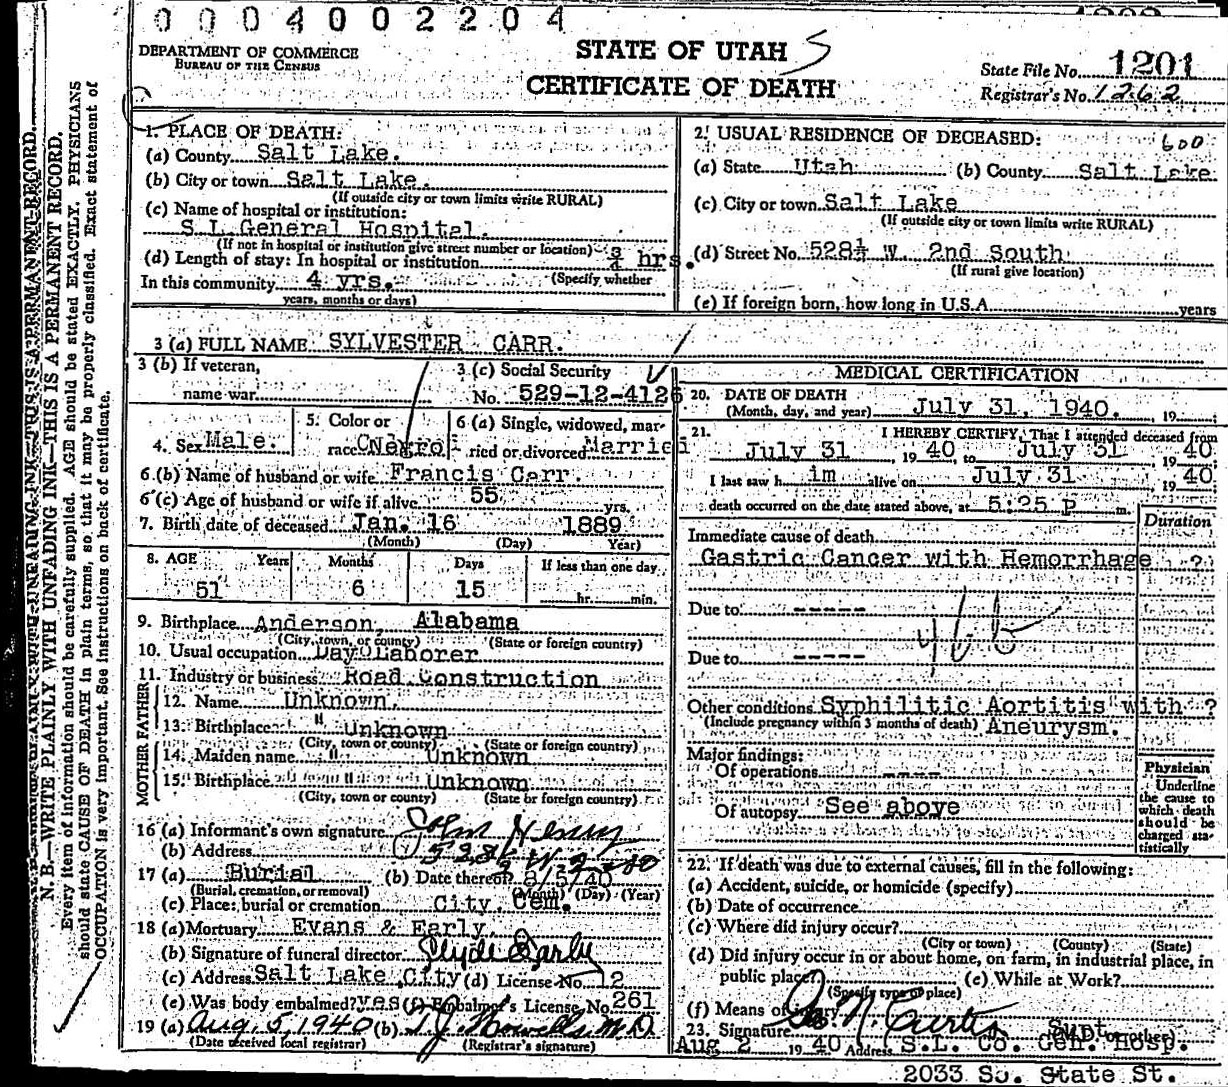 0004002204
DEPARTMENT OF COMMERCE
BUREAU OF THE CENSUS
STATE OF UTAH
CERTIFICATE OF DEATH
State File No. 1201
Registrar's No. 1262
N. B.—WRITE PLAINLY WITH UNFADING INK—THIS IS A PERMANENT RECORD.
Every item of information should be carefully supplied. AGE should be stated EXACTLY. PHYSICIANS
should state CAUSE OF DEATH in plain terms, so that it may be properly classified. Exact statement of
OCCUPATION is very important. See instructions on back of certificate.
1. PLACE OF DEATH:
(a) County Salt Lake.
(b) City or town Salt Lake.
(If outside city or town limits write RURAL)
(c) Name of hospital or institution:
S L General Hospital.
(If not in hospital or institution give street number or location)
(d) Length of stay: In hospital or institution 3/4 hrs.
(Specify whether
In this community 4 yrs.
years, months or days)
2. USUAL RESIDENCE OF DECEASED: 600
(a) State Utah (b) County Salt Lake
(c) City or town Salt Lake
(If outside city or town limits write RURAL)
(d) Street No. 528½ W. 2nd South
(If rural give location)
(e) If foreign born, how long in U.S.A. years
3 (a) FULL NAME SYLVESTER CARR.
3 (b) If veteran,
name war
3 (c) Social Security
No. 529-12-4126
4. Sex Male.
5. Color or
race Negro
6 (a) Single, widowed, mar-
ried or divorced Married
6 (b) Name of husband or wife Francis Carr.
6 (c) Age of husband or wife if alive 55 yrs.
7. Birth date of deceased Jan. 16 1889
(Month) (Day) Year)
8. AGE Years Months Days If less than one day
51 6 15 hr. min.
9. Birthplace Anderson, Alabama
(City, town, or county) (State or foreign country)
10. Usual occupation Day Laborer
11. Industry or business Road Construction
FATHER
12. Name Unknown.
13. Birthplace " Unknown
(City, town or county) (State or foreign country)
MOTHER
14. Maiden name " Unknown
15. Birthplace " Unknown
(City, town or county) (State or foreign country)
16 (a) Informant's own signature John Henry
(b) Address 528½ W 2 So
17 (a) Burial (b) Date thereof 8/5/40
(Burial, cremation, or removal) (Month) (Day) (Year)
(c) Place: burial or cremation City Cem.
18 (a) Mortuary Evans & Early
(b) Signature of funeral director Clyde Early
(c) Address Salt Lake City (d) License No. 12
(e) Was body embalmed? yes (f) Embalmer's License No. 261
19 (a) Aug. 5, 1940 (b) T.J. Howells M.D.
(Date received local registrar) (Registrar's signature)
MEDICAL CERTIFICATION
20. DATE OF DEATH
(Month, day, and year) July 31, 1940. 19
21. I HEREBY CERTIFY, That I attended deceased from
July 31 1940 to July 31 1940
I last saw him alive on July 31 1940
death occurred on the date stated above, at 5:25 P m.
Duration
Immediate cause of death
Gastric Cancer with Hemorrhage ?
Due to -----
46b
Due to -----
Other conditions Syphilitic Aortitis with ?
(Include pregnancy within 3 months of death) Aneurysm.
Major findings:
Of operations ----
Of autopsy See above
Physician
Underline
the cause to
which death
should be
charged sta-
tistically
22. If death was due to external causes, fill in the following:
(a) Accident, suicide, or homicide (specify)
(b) Date of occurrence
(c) Where did injury occur?
(City or town) (County) (State)
(d) Did injury occur in or about home, on farm, in industrial place, in
public place (e) While at Work?
(Specify type of place)
(f) Means of injury
23. Signature N. Curtis Supt.
Aug 2 1940 Address S.L. Co. Gen. Hosp.
2033 So. State St.